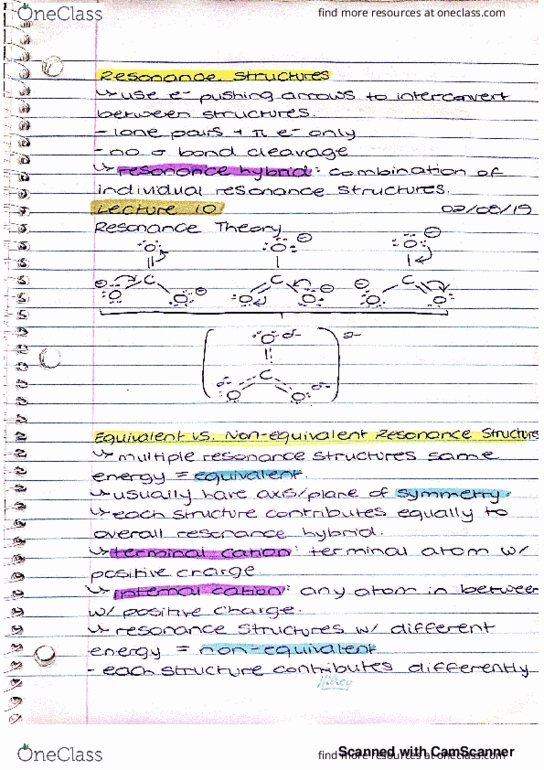 OneClass
find more resources at oneclass.com
Resonance Structures
↳ use e⁻ pushing arrows to interconvert
between structures.
- lone pairs + π e⁻ only
- no σ bond cleavage
↳ resonance hybrid: combination of
individual resonance structures.
Lecture 10 02/08/19
Resonance Theory
:O: :O: ⊖ :O: ⊖
⊖ C C C
:O: :O: ⊖ :O: :O: ⊖ ⊖ :O: :O:
:O: δ- 2-
C
δ- δ-
:O: :O:
Equivalent vs. Non-equivalent Resonance Structures
↳ multiple resonance structures same
energy = equivalent.
↳ usually have axis/plane of symmetry.
↳ each structure contributes equally to
overall resonance hybrid.
↳ terminal cation: terminal atom w/
positive charge
↳ internal cation: any atom in between
w/ positive charge.
↳ resonance structures w/ different
energy = non-equivalent
- each structure contributes differently
Hilroy
OneClass
find more resources at oneclass.com
Scanned with CamScanner